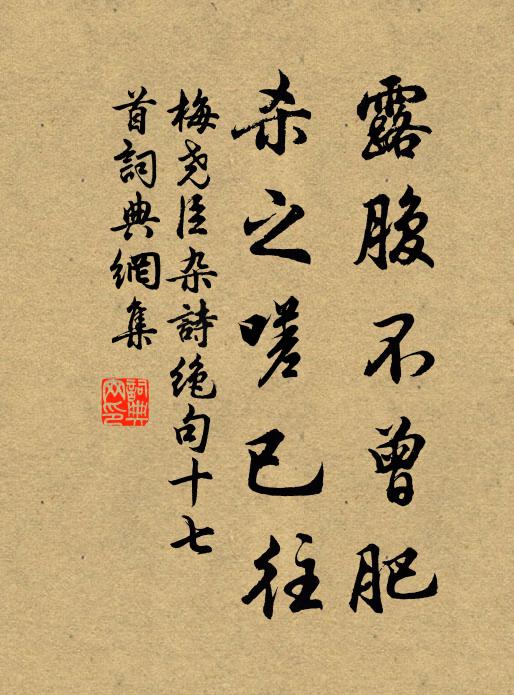 露腹不曾肥
杀之嗟已往
梅尧臣杂詩绝句十七
首詞典網集
詞典
网印